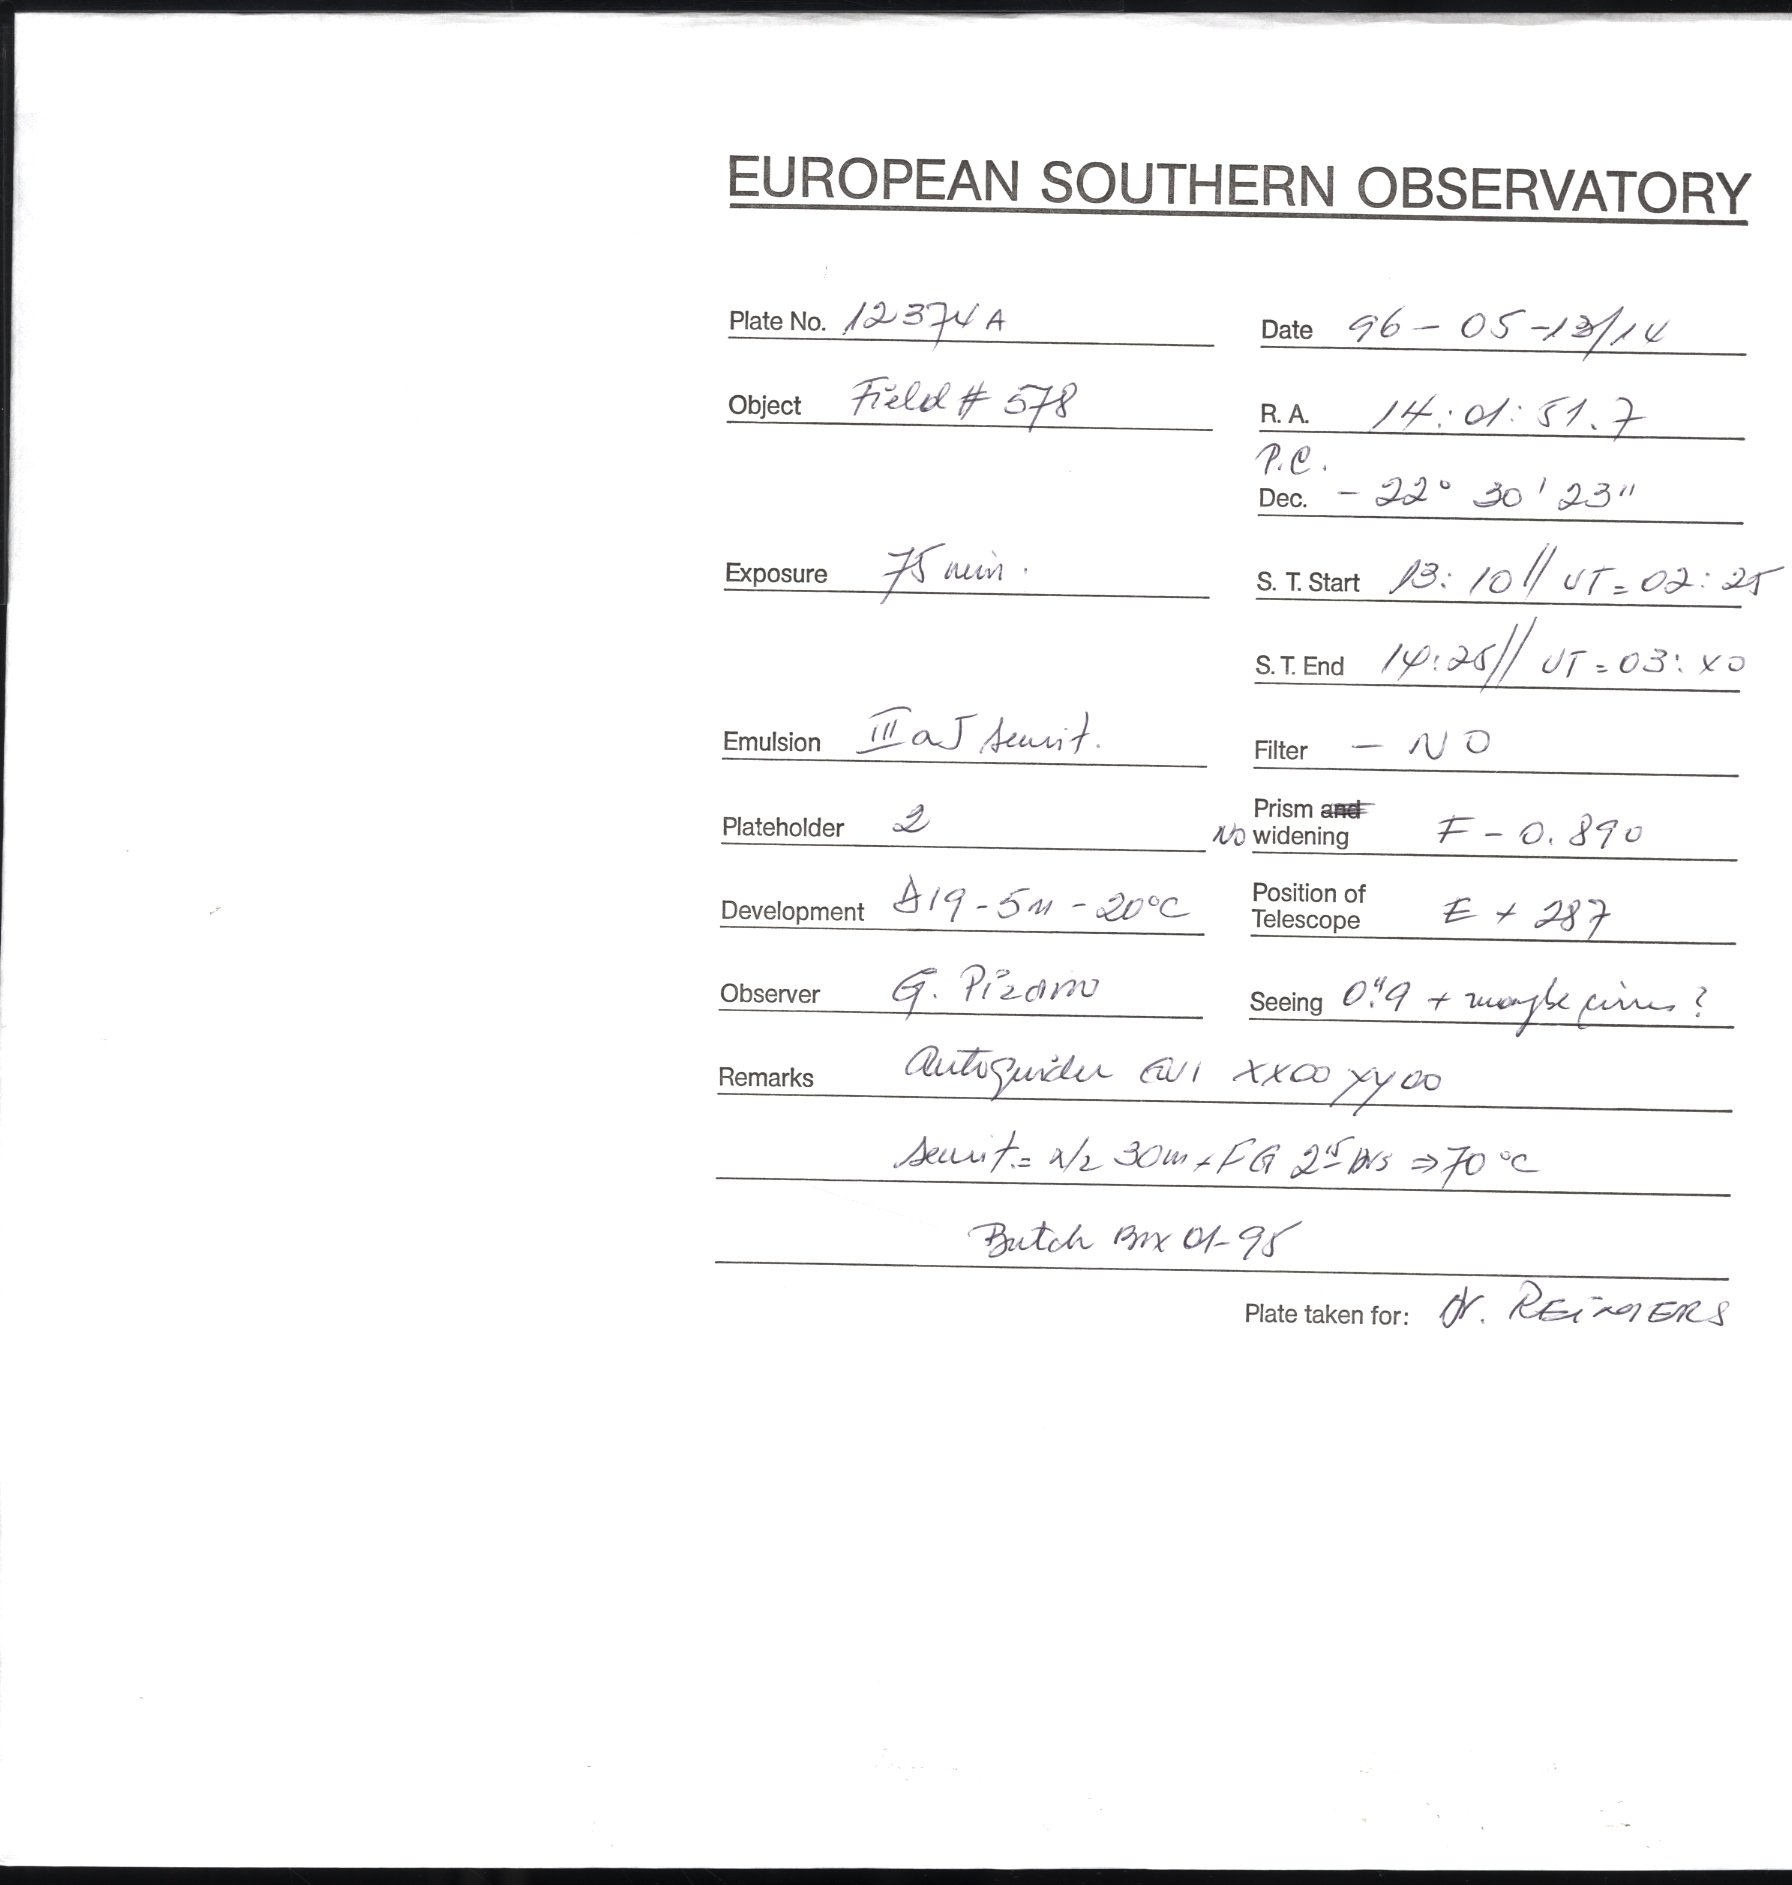 EUROPEAN SOUTHERN OBSERVATORY
Plate No. 12374A Date 96-05-13/14
Object Field # 578 R. A. 14:01:51.7
P.C.
Dec. - 22° 30' 23"
Exposure 75 min. S. T. Start 13:10 // UT = 02:25
S. T. End 14:25 // UT = 03:40
Emulsion III a J sensit. Filter - NO
Plateholder 2 NO Prism and widening F - 0.890
Development D19 - 5m - 20°C Position of Telescope E + 287
Observer G. Pizarro Seeing 0."9 + maybe cirrus ?
Remarks Autoguider GV1 XX00 YY00
sensit. = 30m + FG 2 hrs ⇒ 70°C
Batch Box 01-95
Plate taken for: Dr. REiMERS